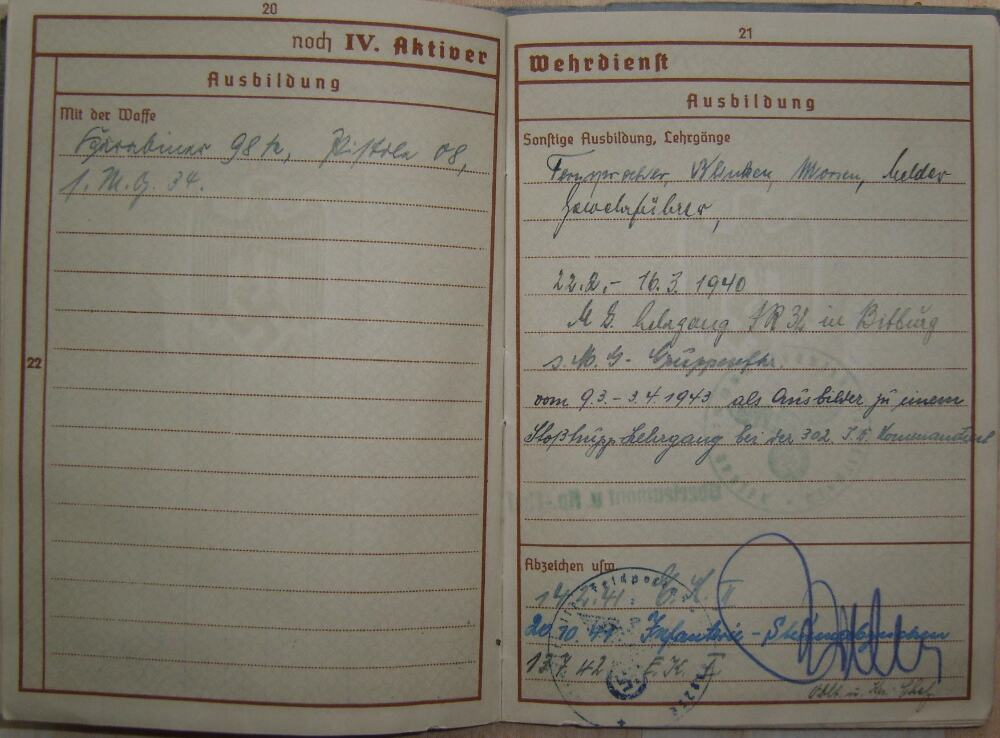 20
noch IV. Aktiver
Ausbildung
Mit der Waffe
Karabiner 98k, Pistole 08,
s. M.G. 34.
22
21
Wehrdienst
Ausbildung
Sonstige Ausbildung, Lehrgänge
Fernsprecher, Blinken, Morsen, Melder
Gewehrführer,
22.2.- 16.3.1940
M.G. Lehrgang in Bitburg
s.M.G- Gruppenfhr.
vom 9.3.-3.4.1943 als Ausbilder zu einem
Stoßtrupp-Lehrgang bei der 302. I.D. kommandiert
Oberleutnant u. Ko.-Chef
Abzeichen usw.
E.K. II
20.10.41 Infanterie-Sturmabzeichen
13.7.42 E.K. I
Feldpost
Oblt. u. Kp. Chef